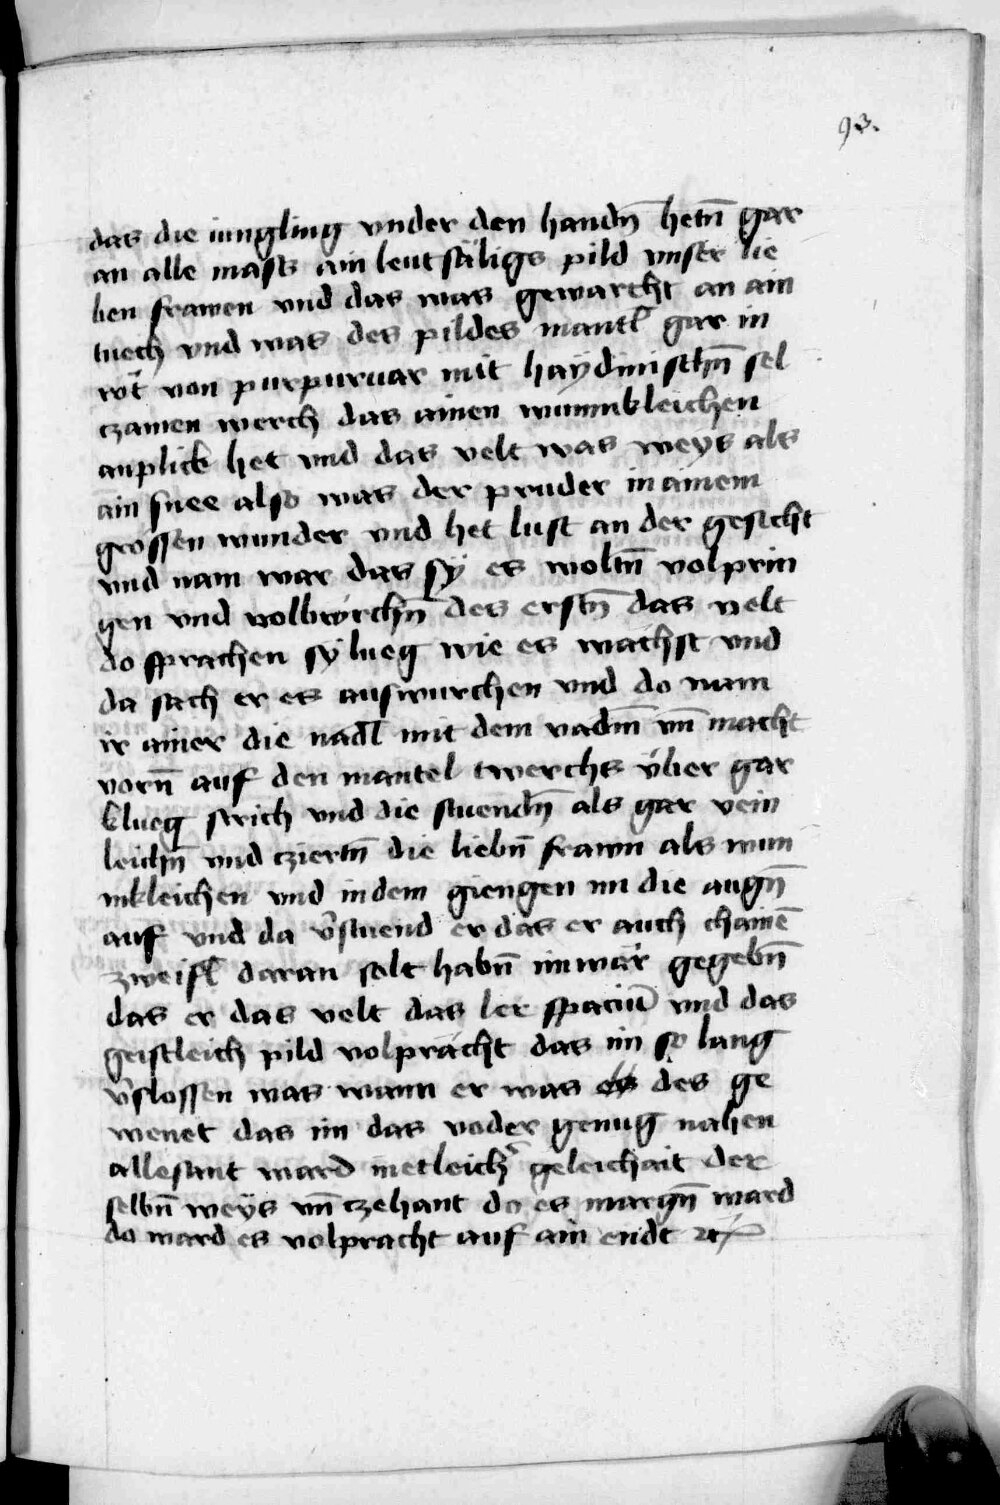 93.
das die iungling vnder den handn̄ hetn̄ gar
an alle mass ain leutsäligs pild vnser lie
ben frawen vnd das was gewarcht an ain
tuech vnd was des pildes mantl gar in
rot von purpuruar mit haÿdinischn̄ sel
czamen werch das ainen wunnikleichen
anplick het vnd das velt was weys als
ain snee also was der pruder in ainem
grossen wunder vnd het lust an der gesicht
vnd nam war das sÿ es woltn̄ volprin
gen vnd volbürchn̄ des erstn̄ das velt
do sprachen sÿ lueg wie es wachst vnd
da sach er es auswurchen vnd do nam
ir ainer die nadl mit dem vadm̄ vn̄ macht
vorn̄ auf den mantel twerchs über gar
klueg strich vnd die stuendn̄ als gar vein
leichn̄ vnd cziertn̄ die liebn̄ frawn als wun
nikleichen vnd in dem giengen im die augn̄
auf vnd da v̄stuend er das er auch chainē
zweifl daran solt habn̄ im wär gegebn̄
das er das velt das ler spaciū vnd das
geistleich pild volprächt das im so lang
v̄slossen was wann er was es des ge
wenet das im das voder genug nahen
allesant ward metleich geleichait der
selbn̄ weÿs vn̄ czehant do es margn̄ ward
do ward es volpracht auf ain endt